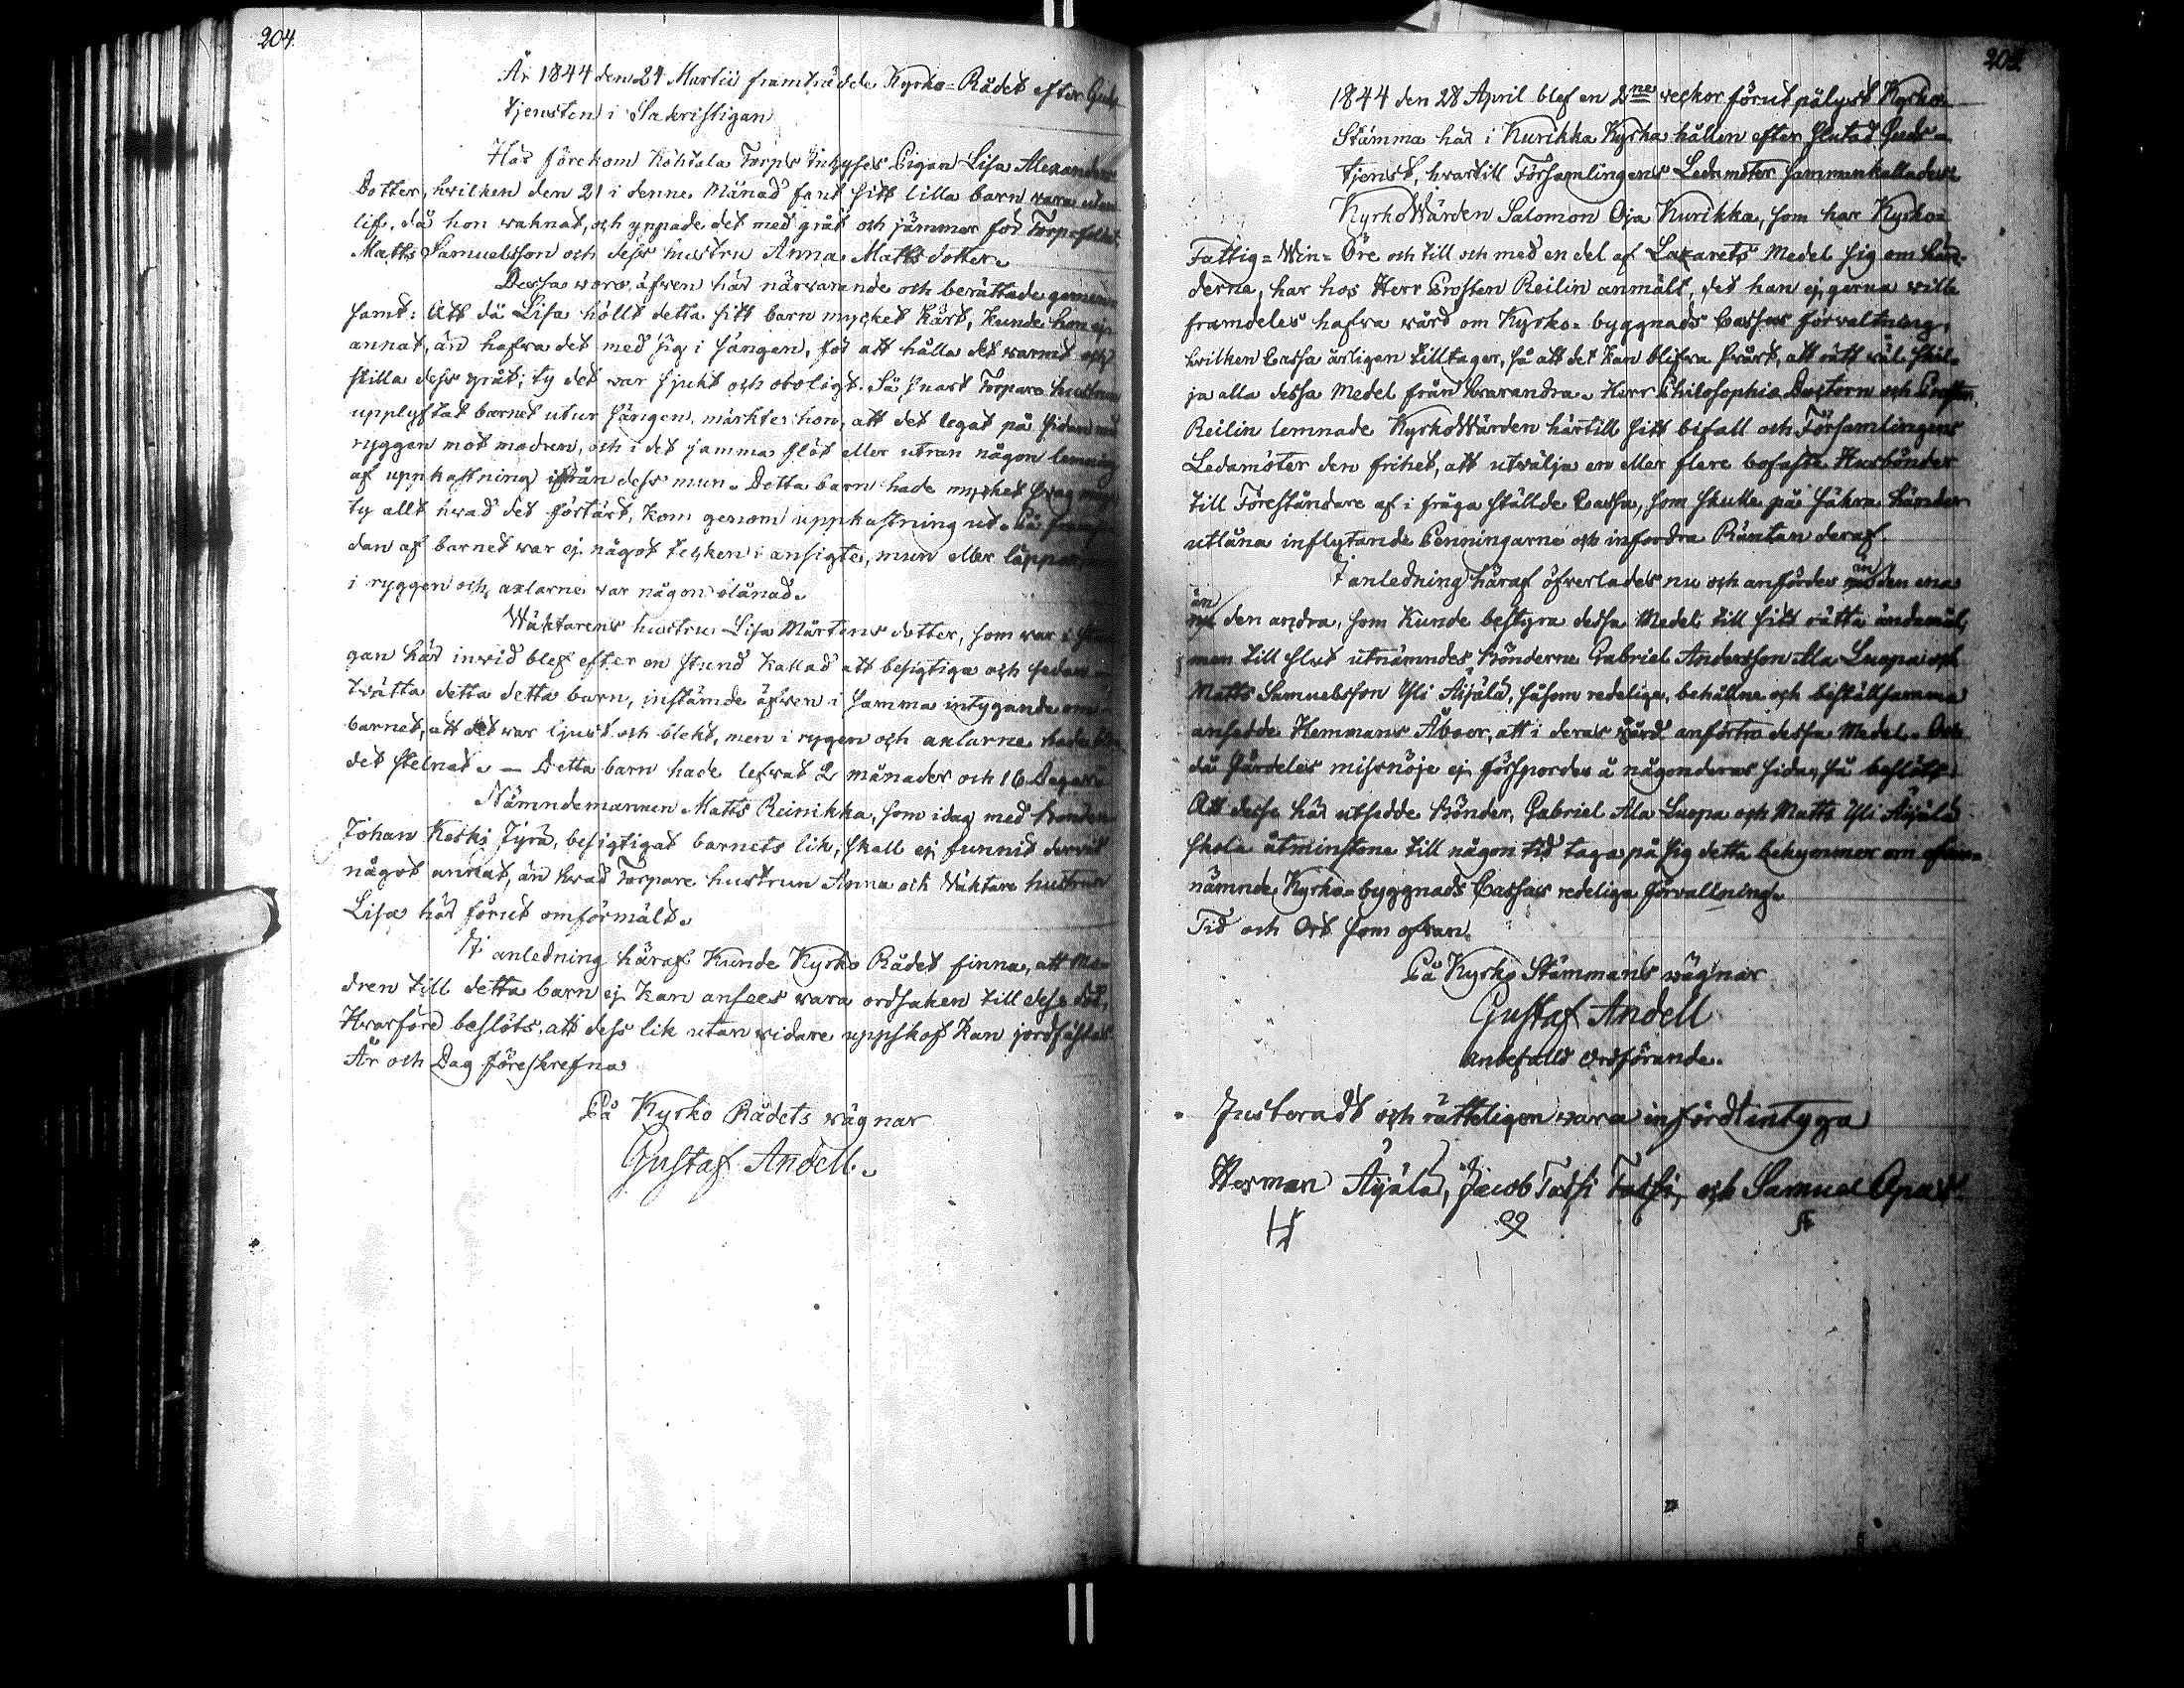 204.
År 1844 den 24 Martii framträdde Kyrko-Rådet efter Guds
tjensten i Sakristigan
Här förekom Köhtala Torps Inhyses Pigan Lisa Alexanders
Dotter, hvilken den 21 i denne Månad fant sitt lilla barn vara utan
lif, då hon waknat, och yppade det med gråt och jämmer för Torpsfolket
Matts Samuelsson och dess hustru Anna Mattsdotter.
Dessa woro äfven här närvarande och berättade gemen-
samt: Att då Lisa höllt detta sitt barn mycket kärt, kunde hon ej
annat, än hafva det med sig i sängen, för att hålla det warmt och
stilla dess gråt; ty det war sjukt och oroligt. Så snart Torpare hustrun
upplyftat barnet utur sängen, märkte hon, att det legat på sidan med
ryggen mot modren, och i det samma slöt eller utran någon lemning
af uppkastning ifrån dess mun. Detta barn hade mycket svag mage
ty allt hvad det förtärt, kom genom uppkastning ut. På fram
dan af barnet war ej något tecken i ansigte, mun eller läppar,
i ryggen och axlarne war någon blånad.
Wäktarens hustru Lisa Mårtens dotter, som war i
gan här invid blef efter en stund kallad att besigtiga och sedan
twätta detta detta barn, instämde äfven i samma intygande om
barnet, att det war ljust och blekt, men i rygen och axlarne hade blo
det stelnat. – Detta barn hade lefvat 2 månader och 16 Dagar.
Nämndemannen Matts Reinikka, som idag med bonden
Johan Keski Jyrä, besigtigat barnets lik, skall ej funnit dervid
något annat, än hvad Torpare hustrun Anna och Wäktare hustrun
Lisa här förut omförmält.
I anledning häraf kunde Kyrko Rådet finna, att Mo-
dren till detta barn ej kan ansees vara ordsaken till dess död,
Hvarföre beslöts, att dess lik utan widare uppskof kan jordfästas
År och Dag föreskrefna
På Kyrko Rådets wägnar
Gustaf Andell.
205.
1844 den 28 April blef en 2ne weckor förut pålyst Kyrko-
Stämma här i Kurikka Kyrka hållen efter slutad Guds-
tjenst, hvartill Församlingens Ledamöter sammankallades.
KyrkoWärden Salomon Oja Kurikka, som har Kyrko-
Fattig- Win- Öre och till och med en del af Lazarets Medel sig om hän-
derne, har hos Herr Prosten Reilin anmält, det han ej gerna wille
framdeles hafva wård om Kyrko-byggnads Cassas förvaltning,
hvilken Cassa årligen tilltager, så att det kan blifva svårt, att rätt wäl skil-
ja alla dessa Medel från hvarandra. Herr Philosophiæ Doctorn och Prosten
Reilin lemnade KyrkoWärden härtill sitt bifall och Församlingens
Ledamöter den frihet, att utwälja en eller flere bofaste Husbönder
till Föreståndare af i fråga ställde Cassa, som skulle på säkra händer
utlåna inflytande Penningarne och infordra Räntan deraf.
I anledning häraf öfverlades nu och anfördes än den ena
än den andra, som kunde bestyra dessa Medel till sitt rätta ändamål,
men till slut utnämndes Bönderne Gabriel Andersson Ala Luopa och
Matts Samuelsson Yli Äijälä, såsom redelige, behållne och beställsamma
ansedde Hemmans Åboer, att i deras wård anförtro dessa Medel. Och
då särdeles missnöje ej försporder å någonderas sida, så beslöts:
Att desse här utsedde Bönder, Gabriel Ala Luopa och Matts Yli Äijälä
skola åtminstone till någon tid taga på sig detta bekymmer om ofvan-
nämnde Kyrko-byggnads Cassas redeliga förvaltning.
Tid och Ort som ofvan.
På Kyrko Stämmans wägnar
Gustaf Andell
anbefalld Ordförande.
Justeradt och rätteligen vara infördt intyga
Herman Äijälä, Jacob Tassi Tassi, och Samuel Opas